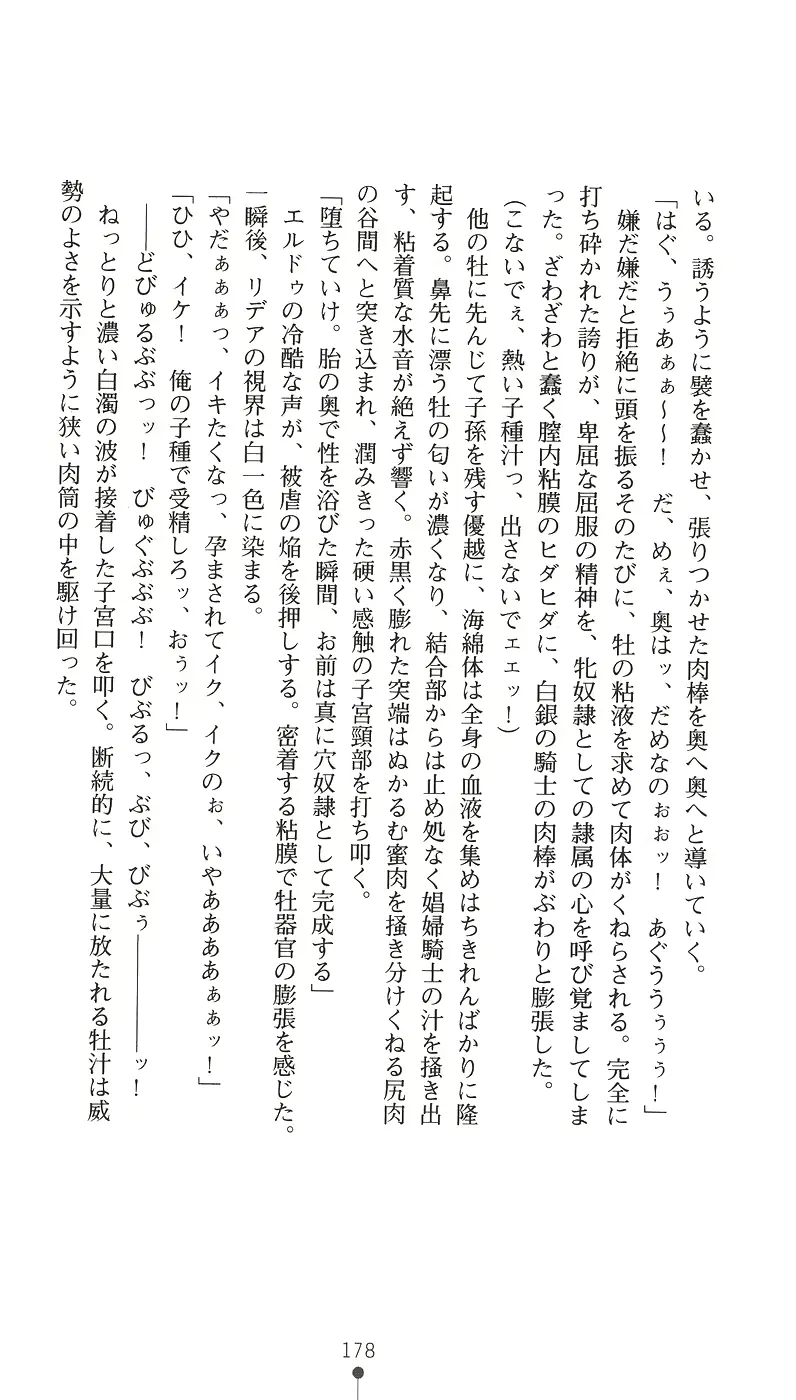 いる。誘うように襞を蠢かせ、張りつかせた肉棒を奥へ奥へと導いていく。
「はぐ、うぅあぁぁ～～！　だ、めぇ、奥はッ、だめなのぉぉッ！　あぐううぅぅぅ！」
嫌だ嫌だと拒絶に頭を振るそのたびに、牡の粘液を求めて肉体がくねらされる。完全に
打ち砕かれた誇りが、卑屈な屈服の精神を、牝奴隷としての隷属の心を呼び覚ましてしま
った。ざわざわと蠢く膣内粘膜のヒダヒダに、白銀の騎士の肉棒がぶわりと膨張した。
（こないでぇ、熱い子種汁っ、出さないでェェッ！）
他の牡に先んじて子孫を残す優越に、海綿体は全身の血液を集めはちきれんばかりに隆
起する。鼻先に漂う牡の匂いが濃くなり、結合部からは止め処なく娼婦騎士の汁を掻き出
す、粘着質な水音が絶えず響く。赤黒く膨れた突端はぬかるむ蜜肉を掻き分けくねる尻肉
の谷間へと突き込まれ、潤みきった硬い感触の子宮頸部を打ち叩く。
「堕ちていけ。胎の奥で性を浴びた瞬間、お前は真に穴奴隷として完成する」
エルドゥの冷酷な声が、被虐の焔を後押しする。密着する粘膜で牡器官の膨張を感じた。
一瞬後、リデアの視界は白一色に染まる。
「やだぁぁぁっ、イキたくなっ、孕まされてイク、イクのぉ、いやああああぁぁッ！」
「ひひ、イケ！　俺の子種で受精しろッ、おぅッ！」
――どびゅるぶぶっッ！　びゅぐぶぶぶ！　びぶるっ、ぶび、びぶぅ――――ッ！
ねっとりと濃い白濁の波が接着した子宮口を叩く。断続的に、大量に放たれる牡汁は威
勢のよさを示すように狭い肉筒の中を駆け回った。
178